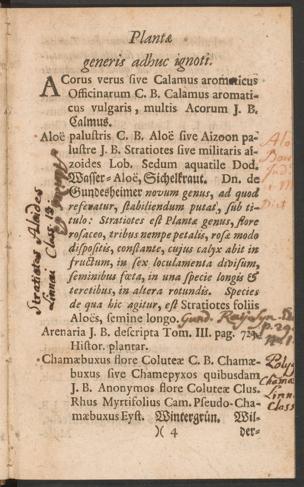 Plantæ
generis adhuc ignoti.
ACorus verus sive Calamus aromaticus
Officinarum C. B. Calamus aromati-
cus vulgaris, multis Acorum J. B.
Calmus.
Aloë palustris C. B. Aloë sive Aizoon pa-
lustre J. B. Stratiotes sive militaris ai-
zoides Lob. Sedum aquatile Dod.
Wasser-Aloë, Sichelkraut. Dn. de
Gundesheimer novum genus, ad quod
referatur, stabiliendum putat, sub ti-
tulo: Stratiotes est Plantæ genus, flore
rosaceo, tribus nempe petalis, rosæ modo
dispositis, constante, cujus calyx abit in
fructum, in sex loculamenta divisum,
seminibus fœta, in una specie longis &
teretibus, in altera rotundis. Species
de qua hic agitur, est Stratiotes foliis
Aloës, semine longo. Gund.
Arenaria J. B. descripta Tom. III. pag.
Histor. plantar.
Chamæbuxus flore Coluteæ C. B. Chamæ-
buxus sive Chamepyxos quibusdam
J. B. Anonymos flore Coluteæ Clus.
Rhus Myrtifolius Cam. Pseudo-Cha-
mæbuxus Eyst. Wintergrün. Wil-
)( 4 der-
Stratiotes Aloides
Linnaei Class. 13
Polyg
Chamæ
Linn
Class